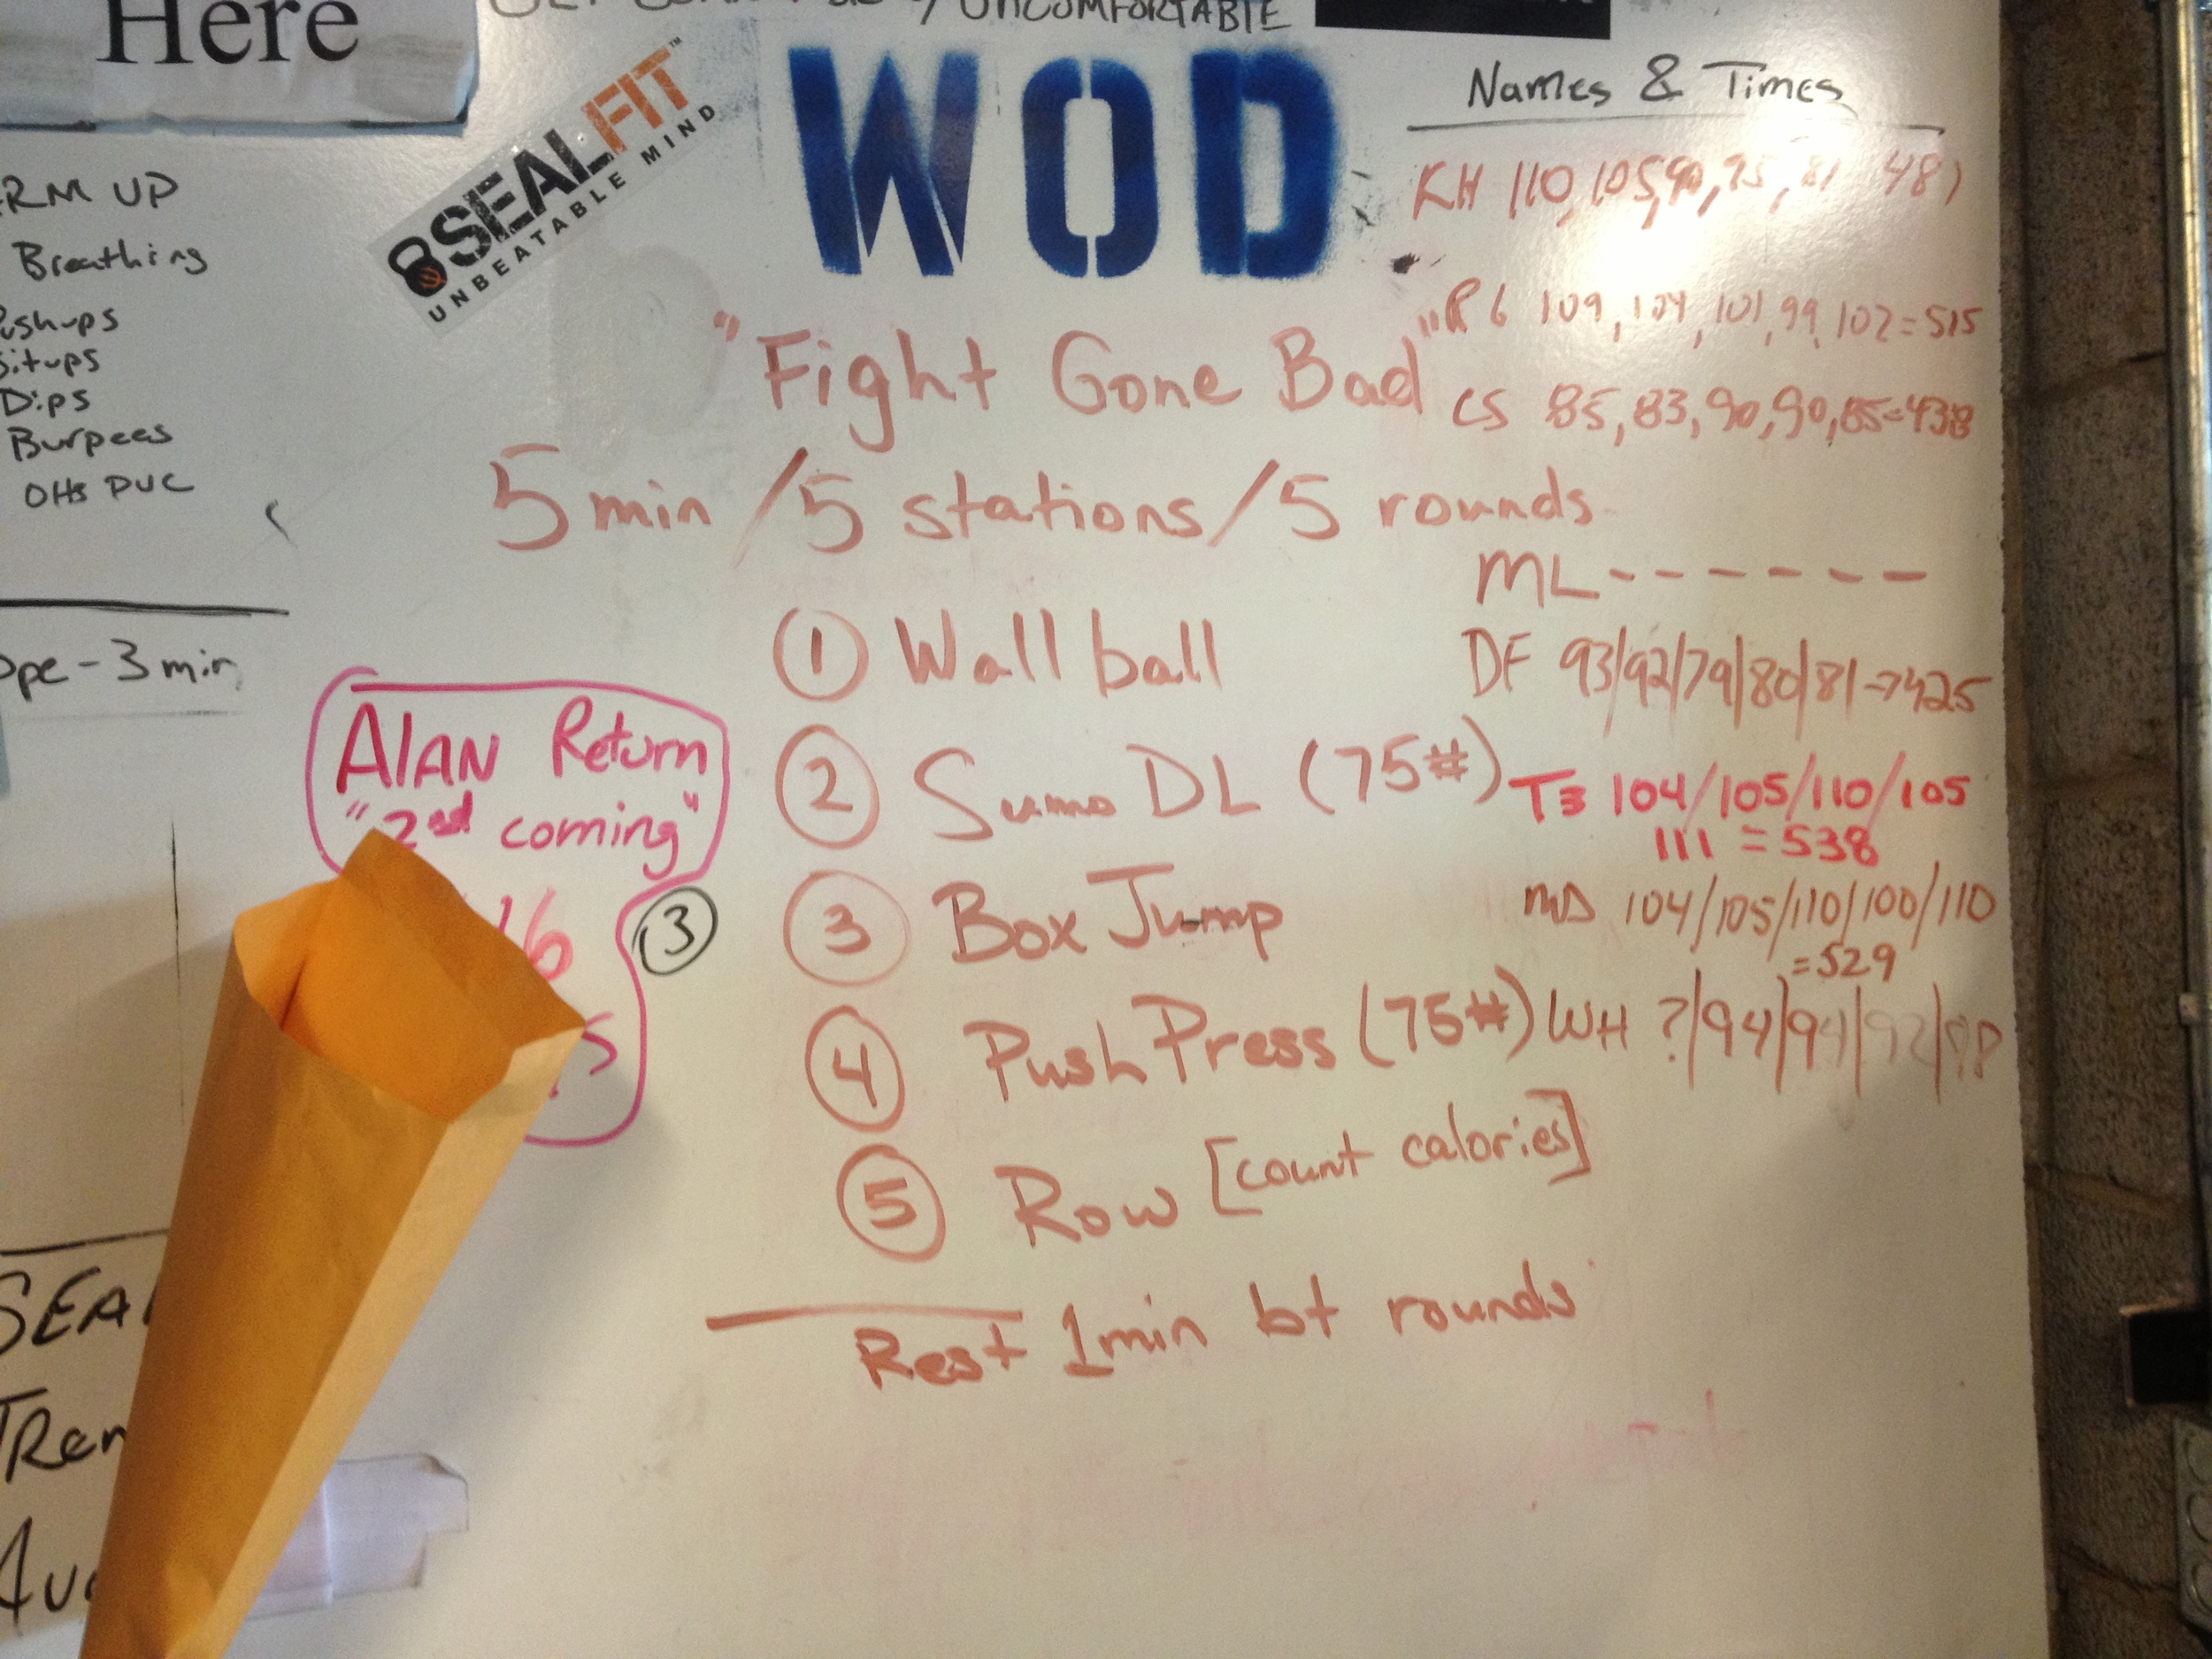 Here
UNCOMFORTABLE
SEALFIT™
UNBEATABLE MIND
WOD
Names & Times
KH 110, 105, 90, 95, 81 481
RG 109, 104, 101, 99, 102 = 515
CS 85, 83, 90, 90, 85 = 438
"Fight Gone Bad"
5 min / 5 stations / 5 rounds
ML - - - - - -
① Wall ball
DF 93/92/79/80/81 → 425
② Sumo DL (75#)
TB 104/105/110/105
111 = 538
③ Box Jump
MD 104/105/110/100/110
= 529
④ Push Press (75#)
WH ?/94/94/92/98
⑤ Row [count calories]
Rest 1min bt rounds
UP
Breathing
Dips
Burpees
OHS PVC
- 3 min
ALAN Return
"2nd coming"
③